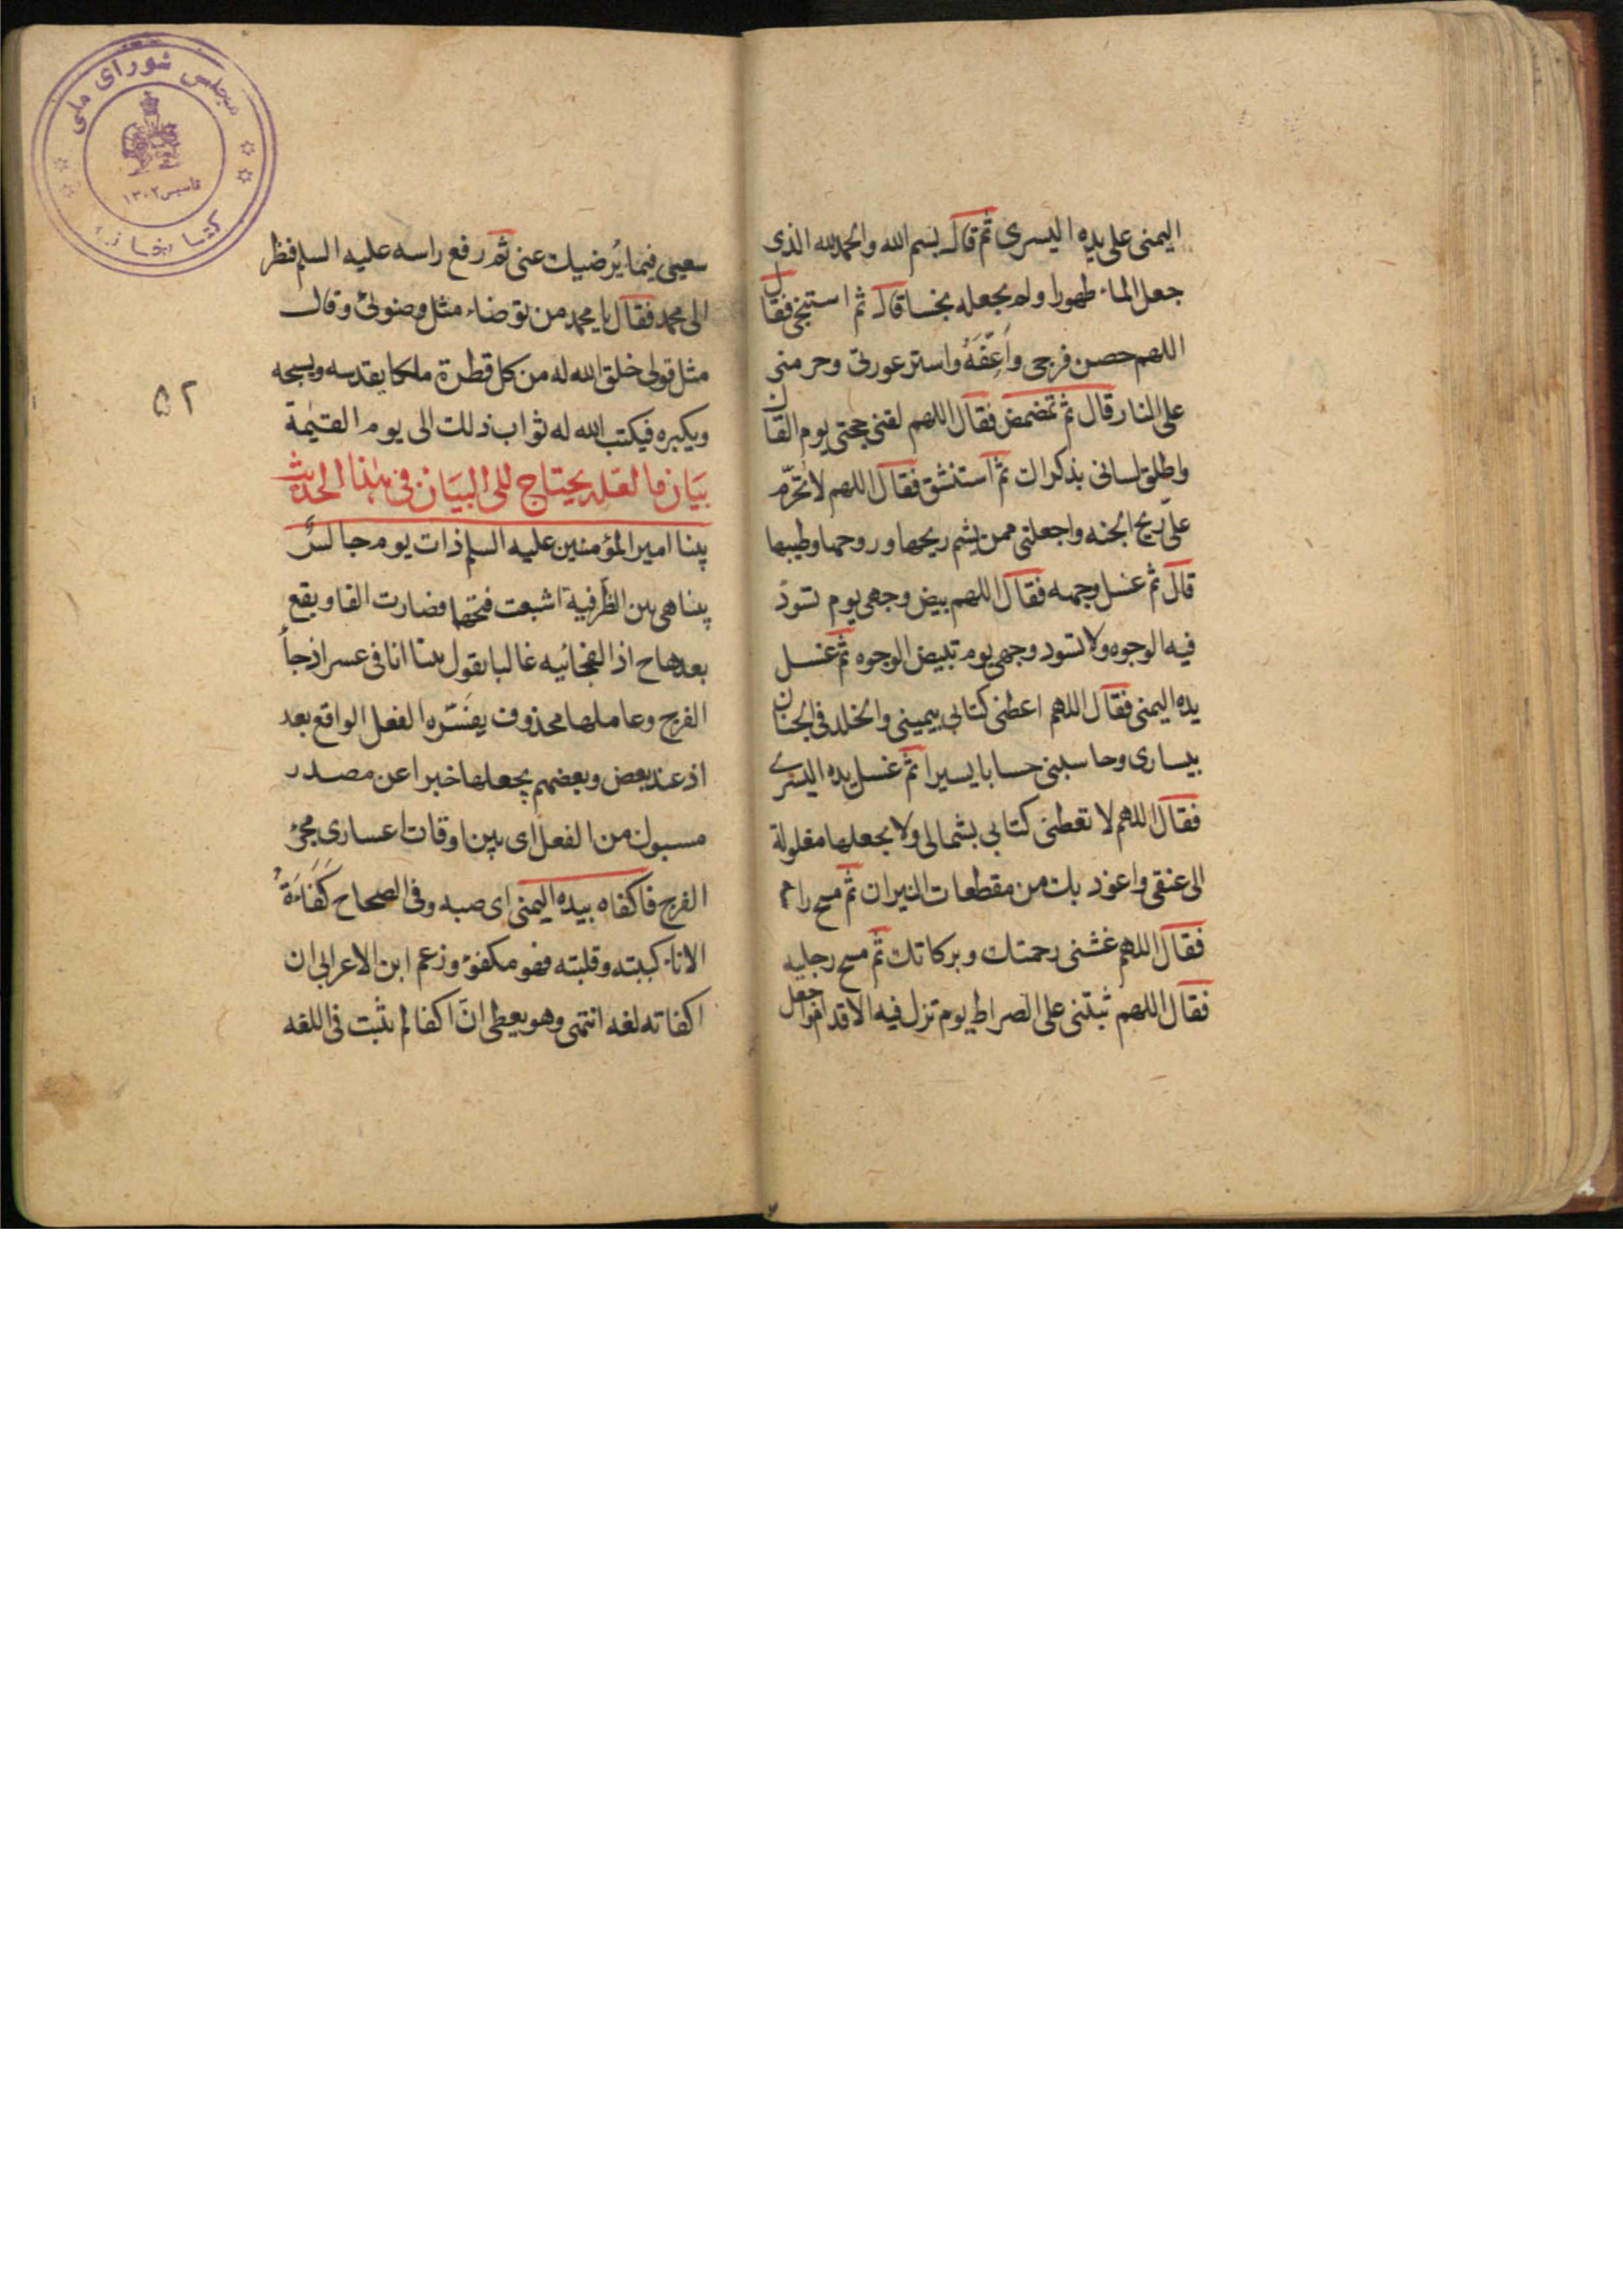 اليمنى على يده اليسرى ثم قال بسم الله والحمد لله الذى
جعل الماء طهورا ولم يجعله نجسا قال ثم استنجى فقال
اللهم حصن فرجى واعفه واستر عورتى وحرمنى
على النار قال ثم تمضمض فقال اللهم لقنى حجتى يوم القاك
واطلق لسانى بذكراك ثم استنشق فقال اللهم لا تحرم
على ريح الجنه واجعلنى ممن يشم ريحها وروحها وطيبها
قال ثم غسل وجهه فقال اللهم بيض وجهى يوم تسود
فيه الوجوه ولا تسود وجهى يوم تبيض الوجوه ثم غسل
يده اليمنى فقال اللهم اعطنى كتابى بيمينى والخلد فى الجنان
بيسارى وحاسبنى حسابا يسيرا ثم غسل يده اليسرى
فقال اللهم لا تعطنى كتابى بشمالى ولا تجعلها مغلولة
الى عنقى واعوذ بك من مقطعات النيران ثم مسح راسه
فقال اللهم غشنى رحمتك وبركاتك ثم مسح رجليه
فقال اللهم ثبتنى على الصراط يوم تزل فيه الاقدام واجعل
سعيى فيما يُرضيك عنى ثم رفع راسه عليه السلم فنظر
الى محمد فقال يا محمد من توضاء مثل وضوئى وقال
مثل قولى خلق الله له من كل قطرة ملكا يقدسه ويسبحه
ويكبره فيكتب الله له ثواب ذلك الى يوم القيٰمة
٥٢
بيان ما لعله يحتاج الى البيان فى هذا الحديث
بينا امير المؤمنين عليه السلم ذات يوم جالسٌ
بينا هى بين الظرفية اشبعت فتحتها فصارت الفا ويقع
بعدها ح اذ الفجائيه غالبا تقول بينا انا فى عسر اذ جاء
الفرج وعاملها محذوف يفسّره الفعل الواقع بعد
اذ عند بعض وبعضهم يجعلها خبرا عن مصدر
مسبوك من الفعل اى بين اوقات اعسارى مجئ
الفرج فاكفاه بيده اليمنى اى صبه وفى الصحاح كَفَاءَتُ
الاناء كببته وقلبته فهو مكفوء وزعم ابن الاعرابى ان
اكفاته لغه انتهى وهو يعطى انّ اكفا لم يثبت فى اللغه
مجلس شوراى ملى
تأسيس ١٣٠٢
كتابخانه